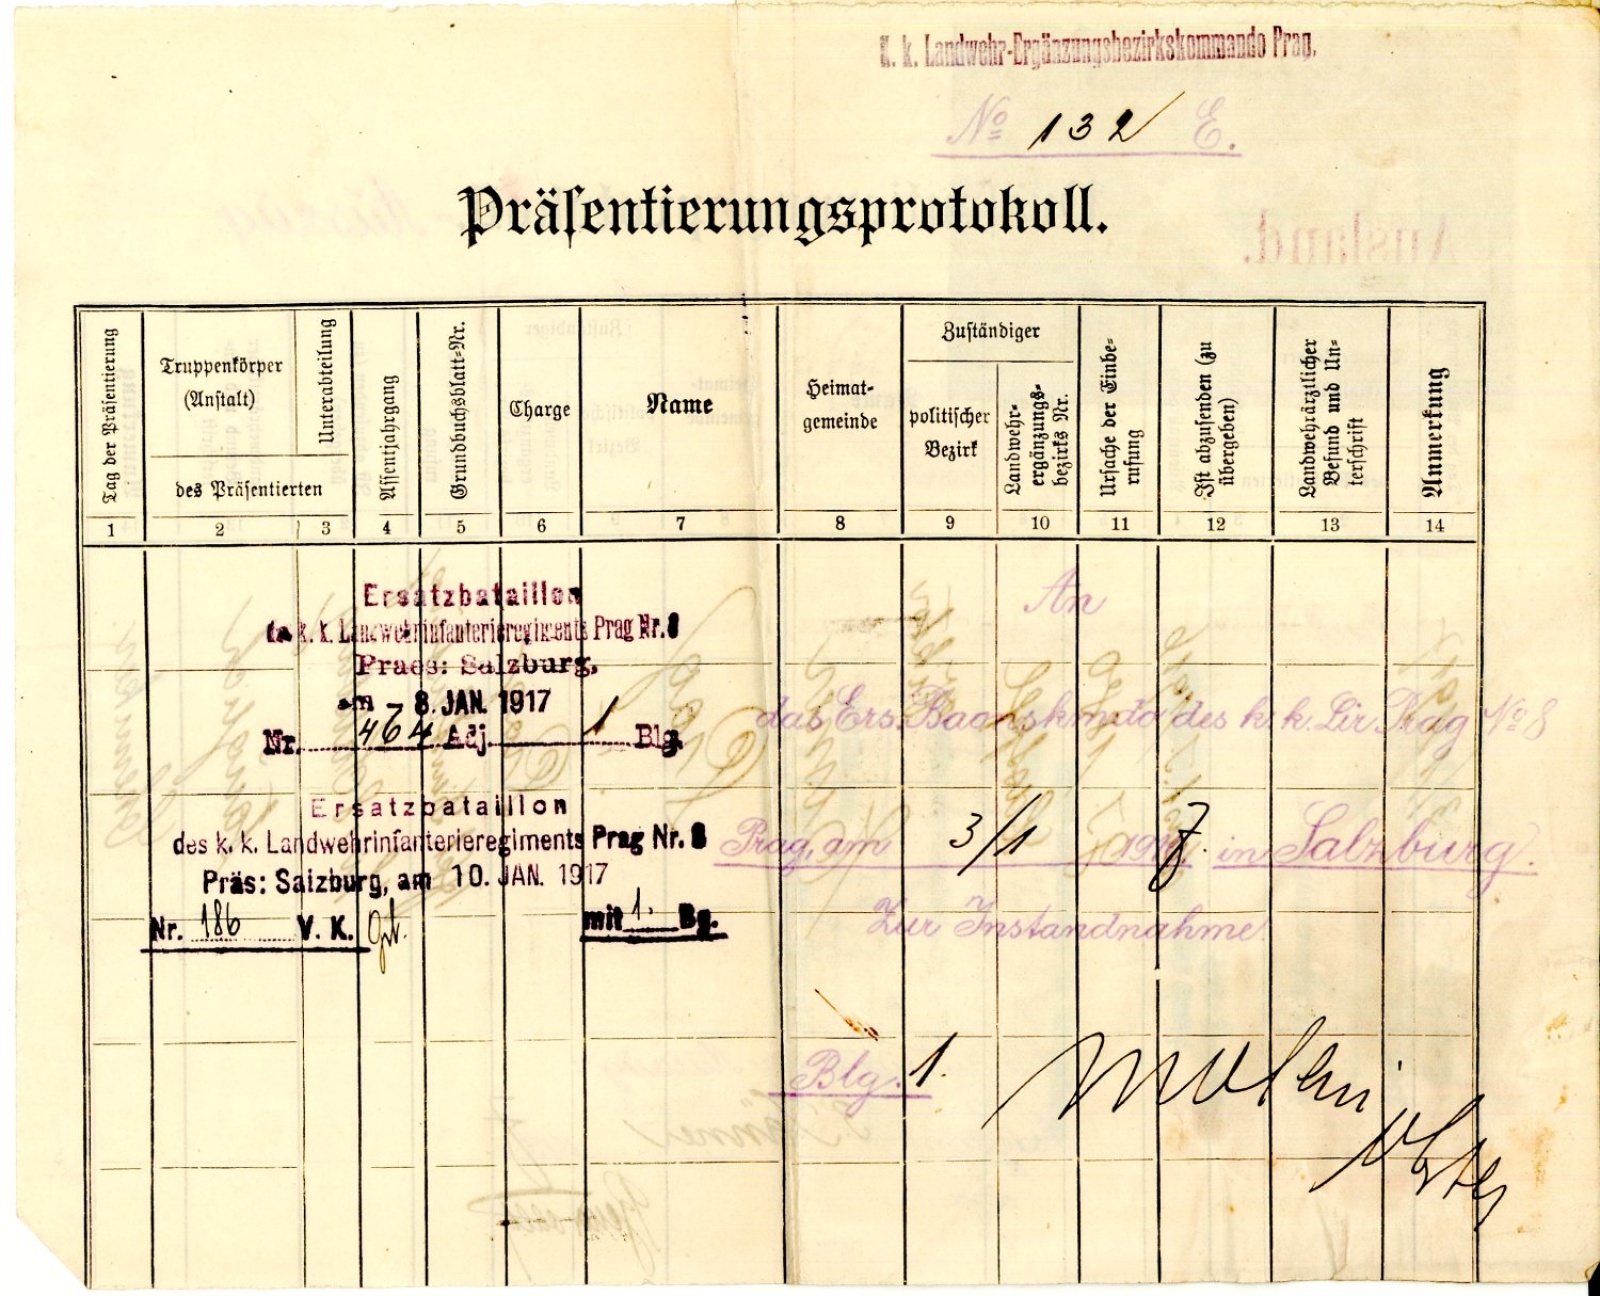 K. k. Landwehr-Ergänzungsbezirkskommando Prag.
No 132 E.
Präsentierungsprotokoll.
Tag der Präsentierung
Truppenkörper
(Anstalt)
Unterabteilung
des Präsentierten
Assentjahrgang
Grundbuchsblatt-Nr.
Charge
Name
Heimat-
gemeinde
Zuständiger
politischer
Bezirk
Landwehr-
ergänzungs-
bezirks Nr.
Ursache der Einbe-
rufung
Ist abzusenden (zu
übergeben)
Landwehrärztlicher
Befund und Un-
terschrift
Anmerkung
1 2 3 4 5 6 7 8 9 10 11 12 13 14
Ersatzbataillon
des k. k. Landwehrinfanterieregiments Prag Nr. 8
Praes: Salzburg,
am - 8. JAN. 1917
Nr. 464 Adj. 1 Blg.
Ersatzbataillon
des k. k. Landwehrinfanterieregiments Prag Nr. 8
Präs: Salzburg, am 10. JAN. 1917
Nr. 186 V. K.
mit 1. Bg.
An
das Ers. Baonskmdo des k. k. Lir. Prag No 8
Prag, am 3/1 1917. in Salzburg.
Zur Instandnahme
Blg. 1.